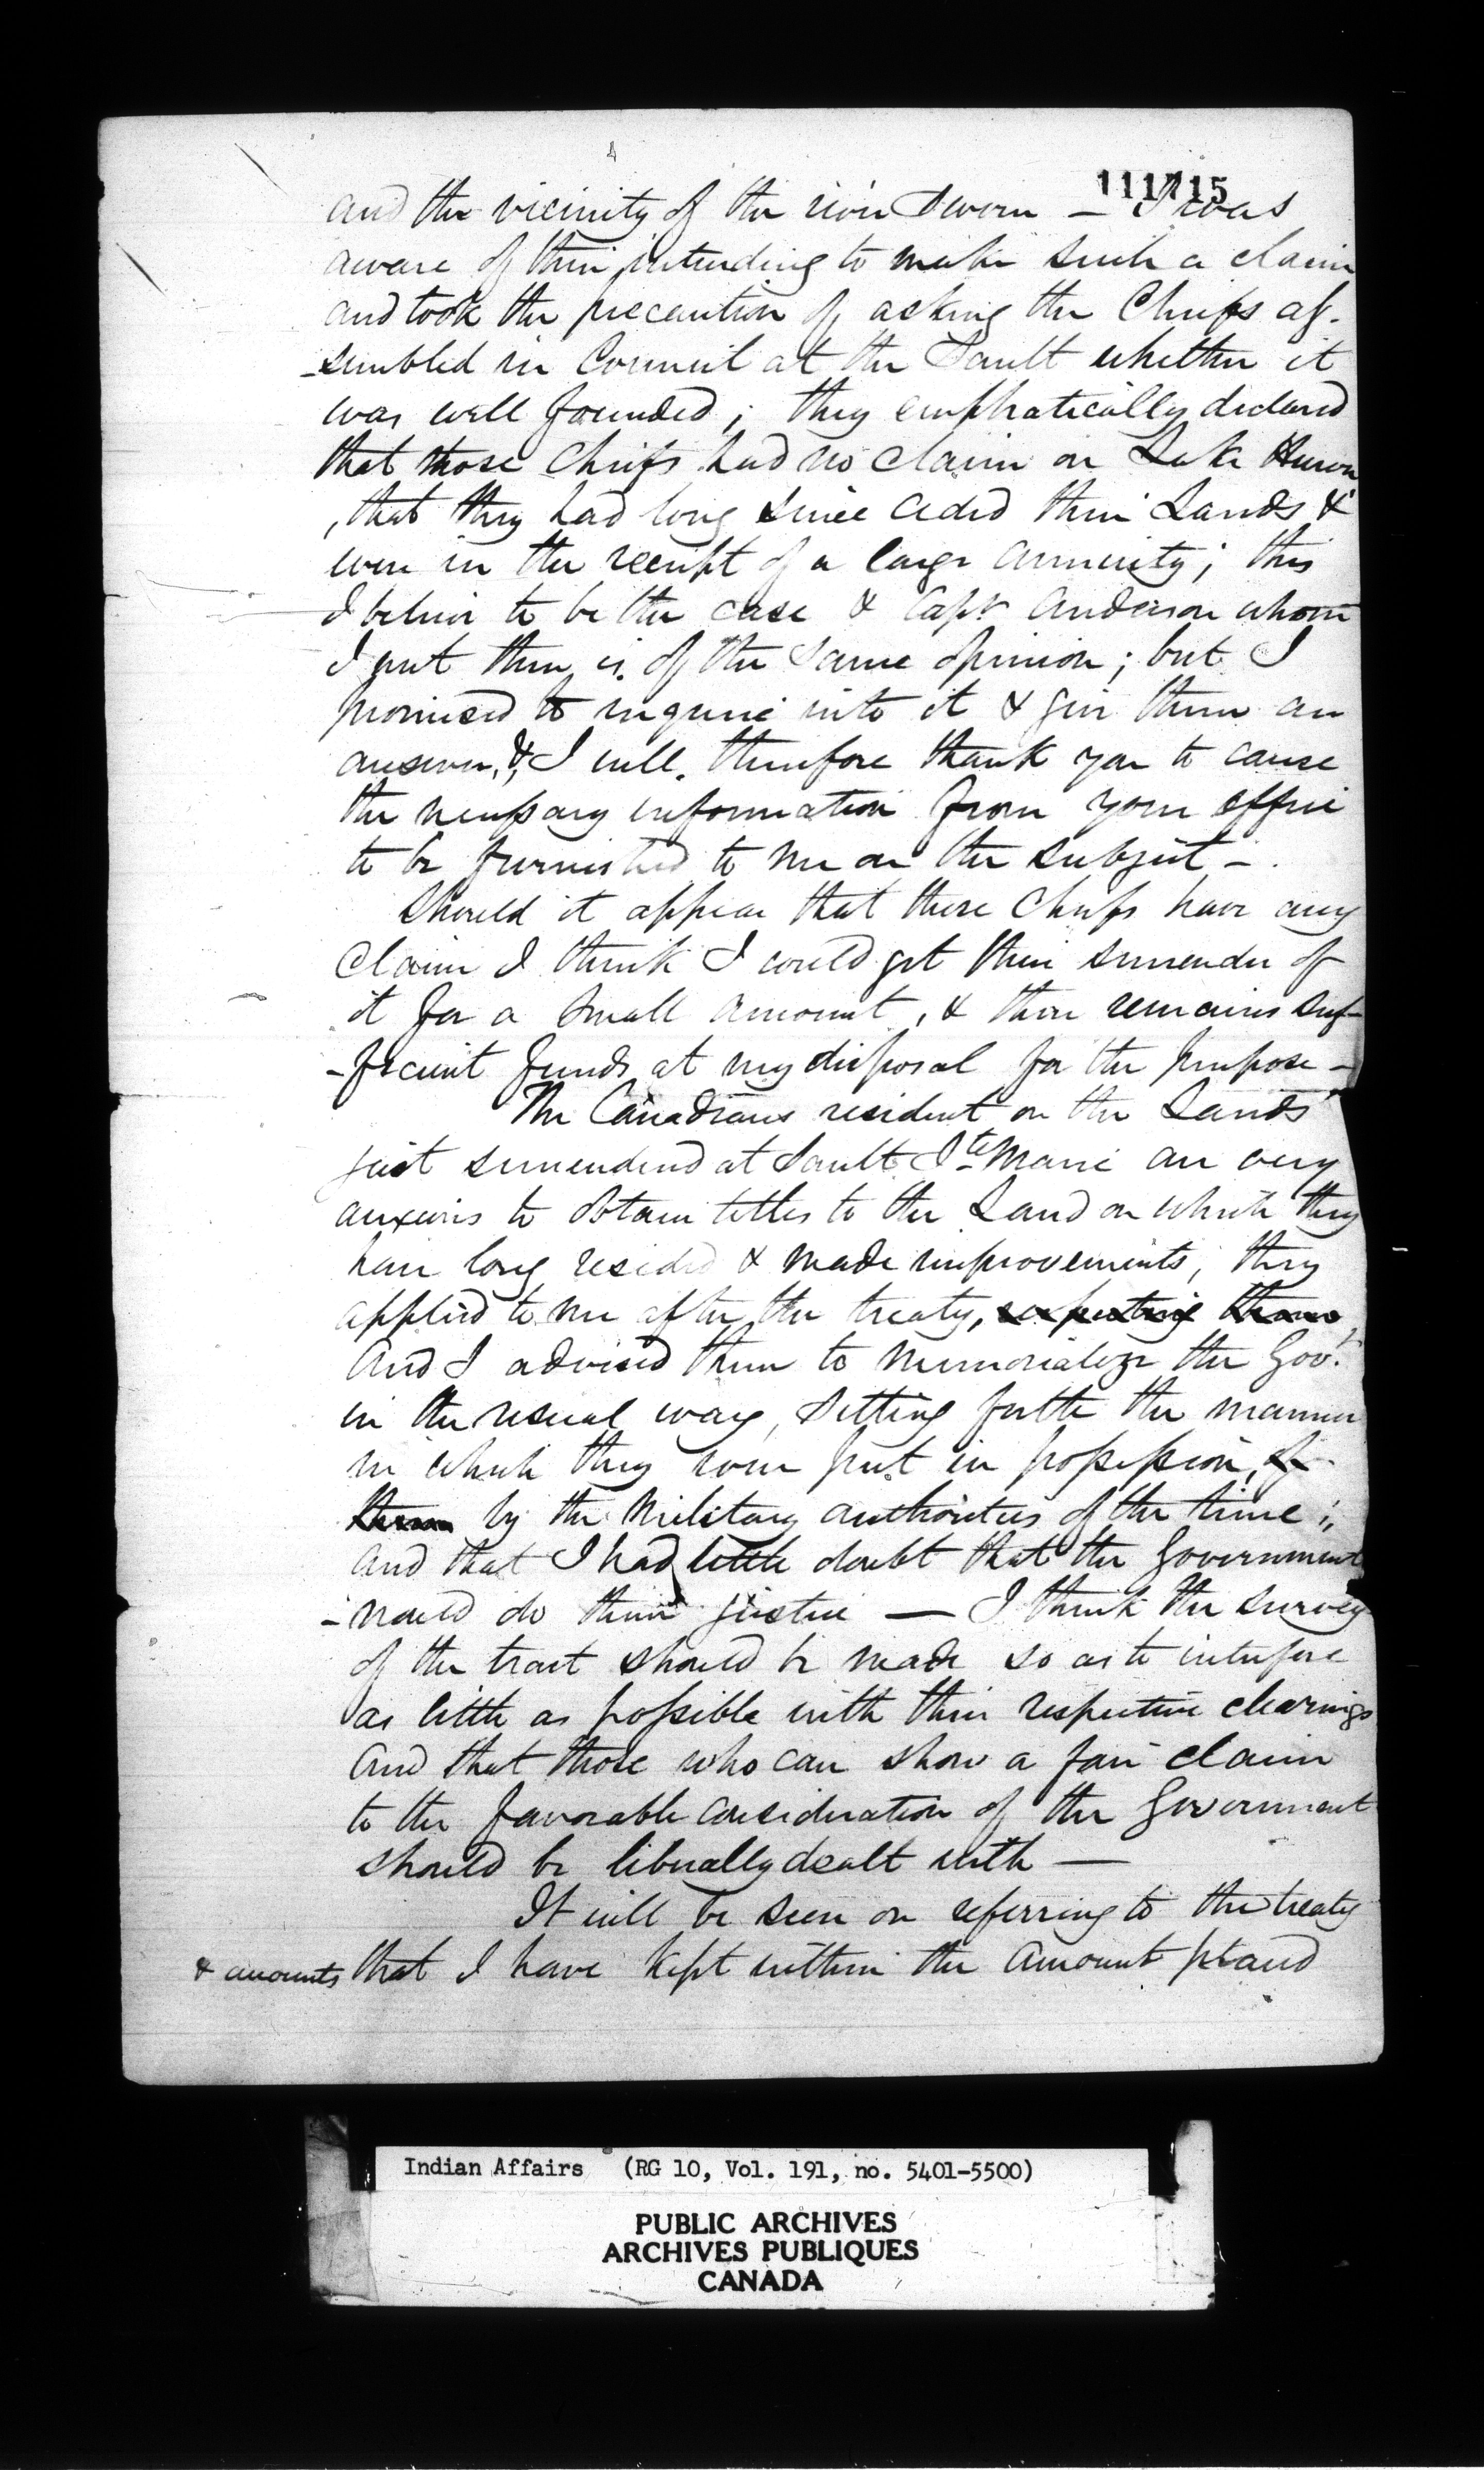 111715
and the vicinity of the river Severn — I was
aware of their intending to make such a claim
and took the precaution of asking the Chiefs as-
-sembled in Council at the Sault whether it
was well founded; they emphatically declared
that those Chiefs had no claim on Lake Huron
, that they had long since ceded their Lands &
were in the receipt of a large annuity; this
I believe to be the case & Capt Anderson whom
I met there is of the same opinion; but I
promised to inquire into it & give them an
answer, & I will therefore thank you to cause
the necessary information from your office
to be furnished to me on the subject —
Should it appear that these Chiefs have any
Claim I think I could get their surrender of
it for a small amount, & there remains suf-
-ficient funds at my disposal for the purpose —
The Canadians resident on the Lands
just surrendered at Sault Ste Marie are very
anxious to obtain titles to the Land on which they
have long resided & made improvements; they
applied to me after the treaty,
and I advised them to memorialize the Govt.
in the usual way, setting forth the manner
in which they were put in possession
them by the Military authorities of the time;
and that I had little doubt that the Government
would do them justice — I think the survey
of the tract should be made so as to interfere
as little as possible with their respective clearings
and that those who can show a fair claim
to the favorable consideration of the Government
should be liberally dealt with —
It will be seen on referring to the treaty
& amounts that I have kept within the amount placed
Indian Affairs (RG 10, Vol. 191, no. 5401-5500)
PUBLIC ARCHIVES
ARCHIVES PUBLIQUES
CANADA